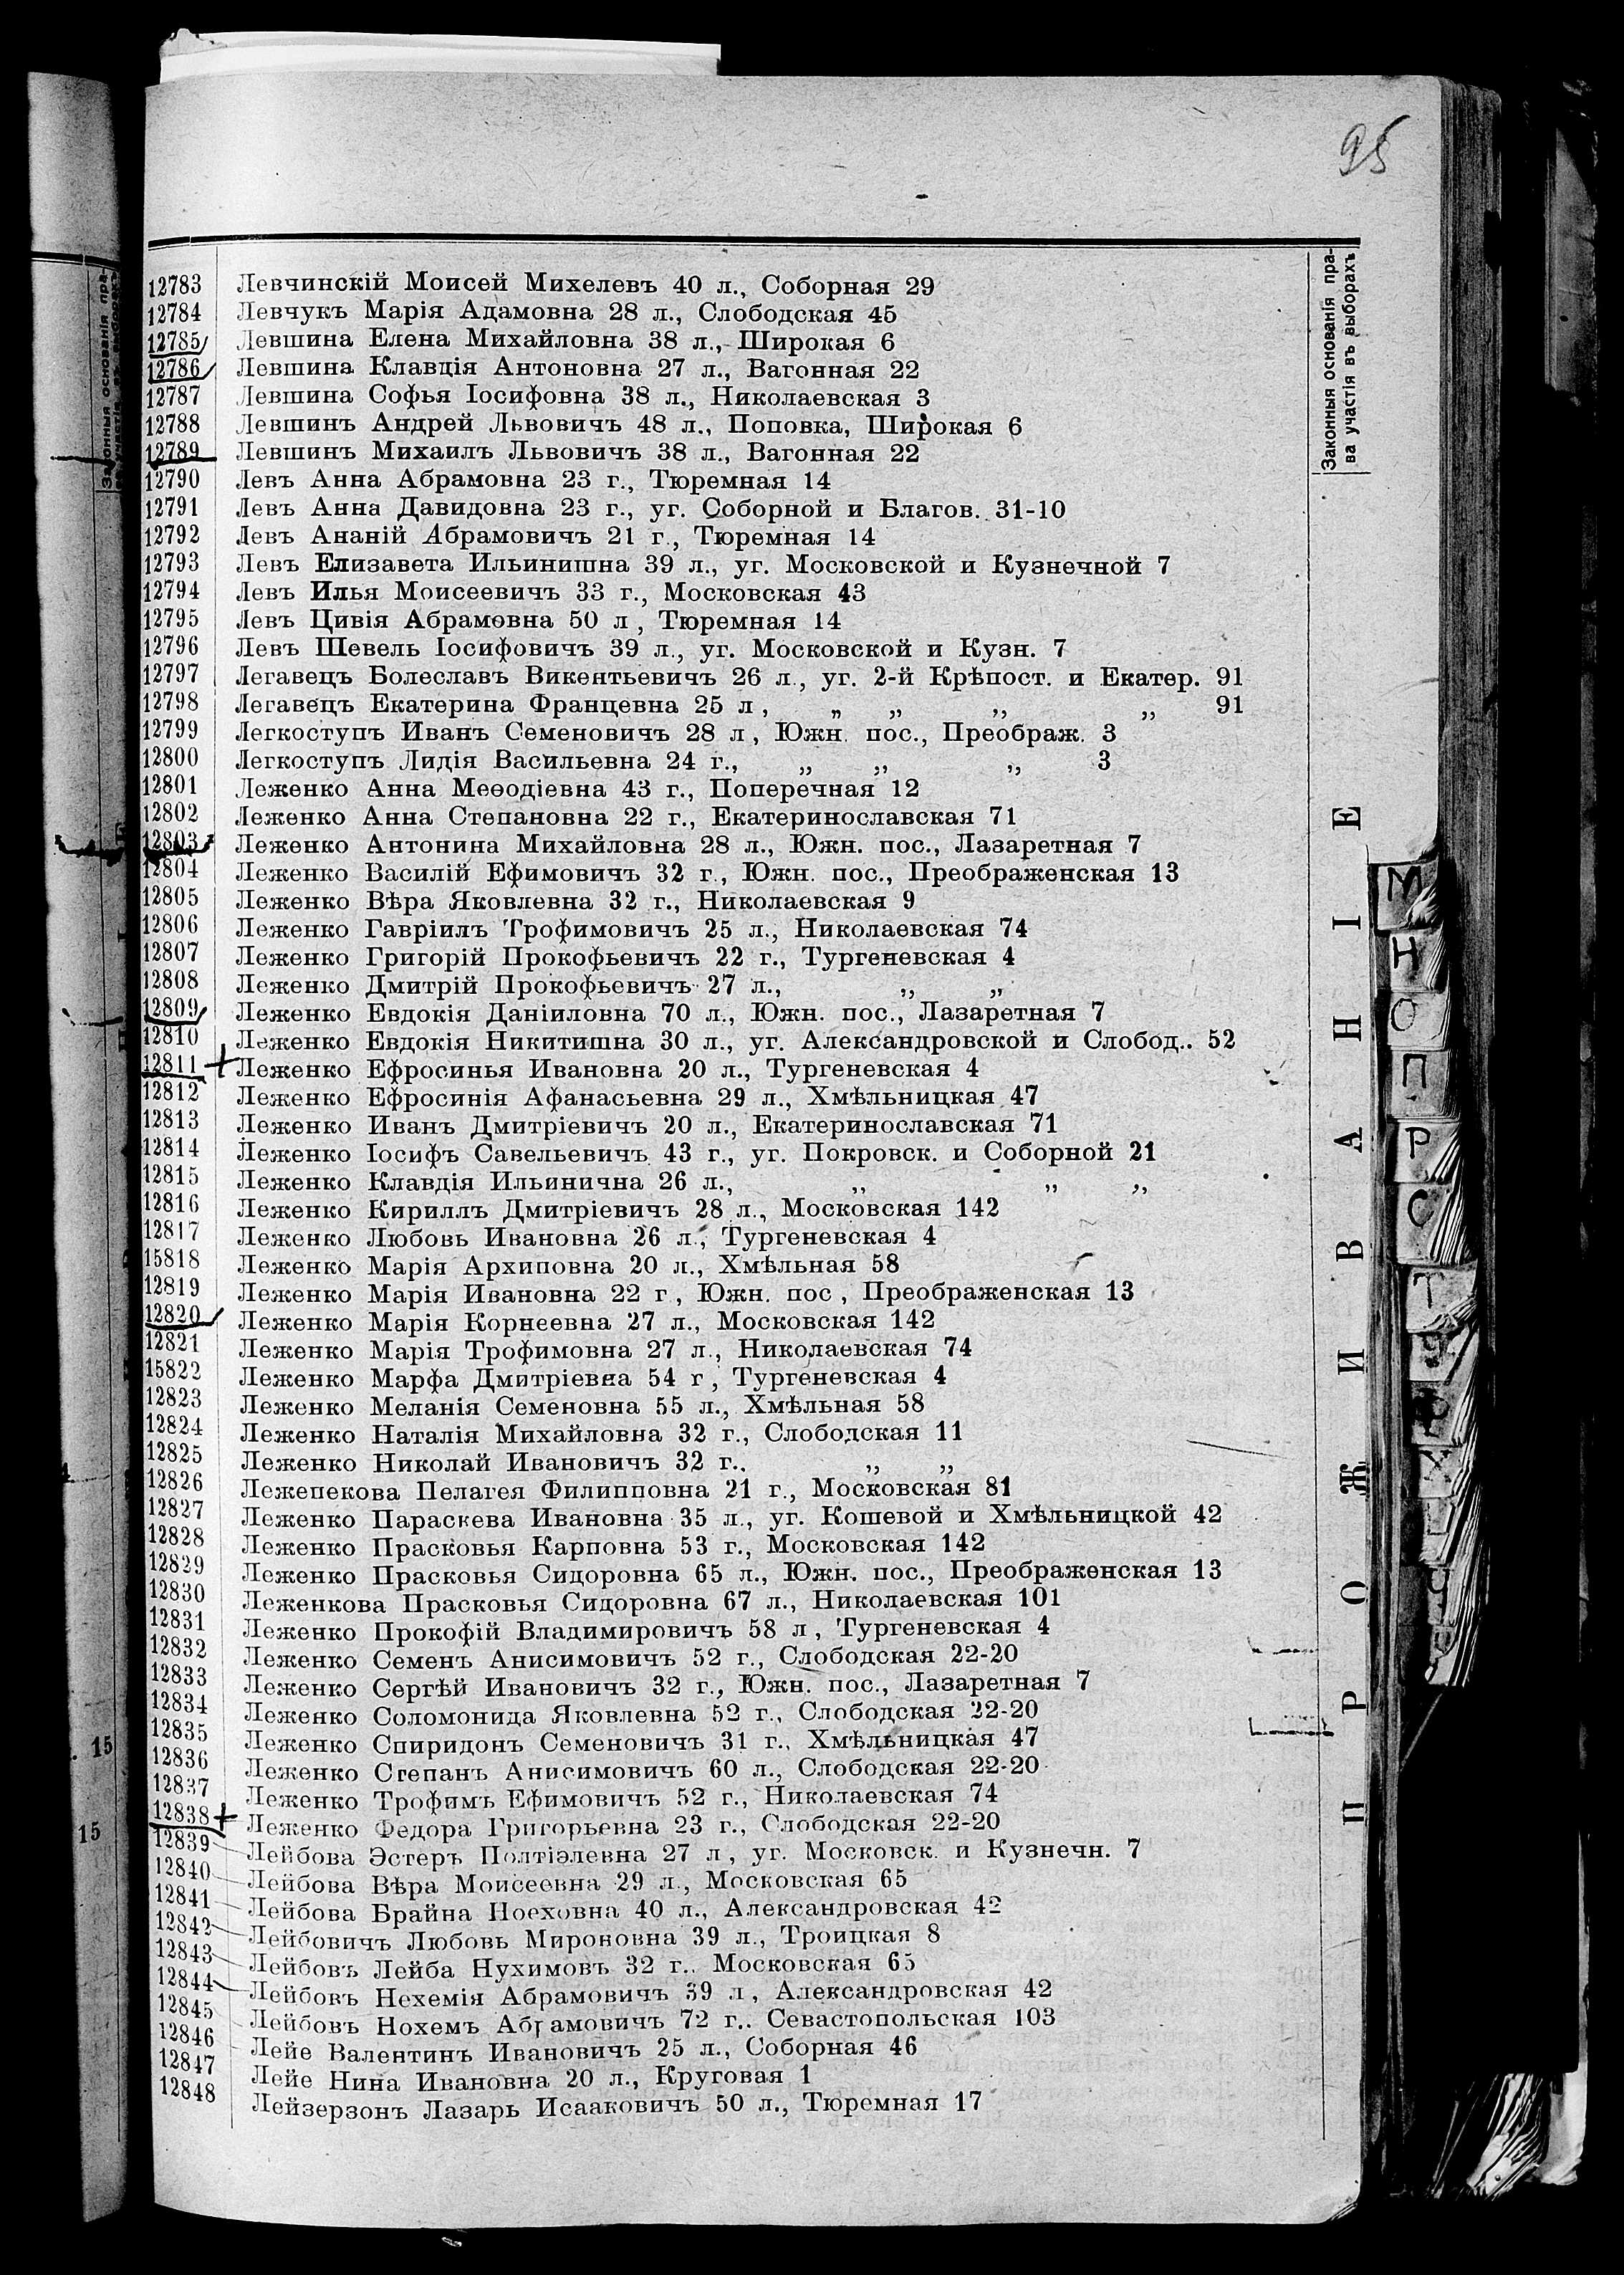 95
Законныя основанія пра-
ва участія въ выборахъ
12783 Левчинскій Моисей Михелевъ 40 л., Соборная 29
12784 Левчукъ Марія Адамовна 28 л., Слободская 45
12785 Левшина Елена Михайловна 38 л., Широкая 6
12786 Левшина Клавція Антоновна 27 л., Вагонная 22
12787 Левшина Софья Іосифовна 38 л., Николаевская 3
12788 Левшинъ Андрей Львовичъ 48 л., Поповка, Широкая 6
12789 Левшинъ Михаилъ Львовичъ 38 л., Вагонная 22
12790 Левъ Анна Абрамовна 23 г., Тюремная 14
12791 Левъ Анна Давидовна 23 г., уг. Соборной и Благов. 31-10
12792 Левъ Ананій Абрамовичъ 21 г., Тюремная 14
12793 Левъ Елизавета Ильинишна 39 л., уг. Московской и Кузнечной 7
12794 Левъ Илья Моисеевичъ 33 г., Московская 43
12795 Левъ Цивія Абрамовна 50 л, Тюремная 14
12796 Левъ Шевель Іосифовичъ 39 л., уг. Московской и Кузн. 7
12797 Легавецъ Болеславъ Викентьевичъ 26 л., уг. 2-й Крѣпост. и Екатер. 91
12798 Легавецъ Екатерина Францевна 25 л, „ „ „ „ 91
12799 Легкоступъ Иванъ Семеновичъ 28 л, Южн. пос., Преображ. 3
12800 Легкоступъ Лидія Васильевна 24 г., „ „ „ 3
12801 Леженко Анна Меѳодіевна 43 г., Поперечная 12
12802 Леженко Анна Степановна 22 г., Екатеринославская 71
12803 Леженко Антонина Михайловна 28 л., Южн. пос., Лазаретная 7
12804 Леженко Василій Ефимовичъ 32 г., Южн. пос., Преображенская 13
12805 Леженко Вѣра Яковлевна 32 г., Николаевская 9
12806 Леженко Гавріилъ Трофимовичъ 25 л., Николаевская 74
12807 Леженко Григорій Прокофьевичъ 22 г., Тургеневская 4
12808 Леженко Дмитрій Прокофьевичъ 27 л., „ „
12809 Леженко Евдокія Даніиловна 70 л., Южн. пос., Лазаретная 7
12810 Леженко Евдокія Никитишна 30 л., уг. Александровской и Слобод.. 52
12811 + Леженко Ефросинья Ивановна 20 л., Тургеневская 4
12812 Леженко Ефросинія Афанасьевна 29 л., Хмѣльницкая 47
12813 Леженко Иванъ Дмитріевичъ 20 л., Екатеринославская 71
12814 Леженко Іосифъ Савельевичъ 43 г., уг. Покровск. и Соборной 21
12815 Леженко Клавдія Ильинична 26 л., „ „ „
12816 Леженко Кириллъ Дмитріевичъ 28 л., Московская 142
12817 Леженко Любовь Ивановна 26 л., Тургеневская 4
15818 Леженко Марія Архиповна 20 л., Хмѣльная 58
12819 Леженко Марія Ивановна 22 г, Южн. пос, Преображенская 13
12820 Леженко Марія Корнеевна 27 л., Московская 142
12821 Леженко Марія Трофимовна 27 л., Николаевская 74
15822 Леженко Марфа Дмитріевна 54 г, Тургеневская 4
12823 Леженко Меланія Семеновна 55 л., Хмѣльная 58
12824 Леженко Наталія Михайловна 32 г., Слободская 11
12825 Леженко Николай Ивановичъ 32 г., „ „
12826 Лежепекова Пелагея Филипповна 21 г., Московская 81
12827 Леженко Параскева Ивановна 35 л., уг. Кошевой и Хмѣльницкой 42
12828 Леженко Прасковья Карповна 53 г., Московская 142
12829 Леженко Прасковья Сидоровна 65 л., Южн. пос., Преображенская 13
12830 Леженкова Прасковья Сидоровна 67 л., Николаевская 101
12831 Леженко Прокофій Владимировичъ 58 л, Тургеневская 4
12832 Леженко Семенъ Анисимовичъ 52 г., Слободская 22-20
12833 Леженко Сергѣй Ивановичъ 32 г., Южн. пос., Лазаретная 7
12834 Леженко Соломонида Яковлевна 52 г., Слободская 22-20
12835 Леженко Спиридонъ Семеновичъ 31 г., Хмѣльницкая 47
12836 Леженко Степанъ Анисимовичъ 60 л., Слободская 22-20
12837 Леженко Трофимъ Ефимовичъ 52 г., Николаевская 74
12838 + Леженко Федора Григорьевна 23 г., Слободская 22-20
12839 Лейбова Эстеръ Полтіэлевна 27 л, уг. Московск. и Кузнечн. 7
12840 Лейбова Вѣра Моисеевна 29 л., Московская 65
12841 Лейбова Брайна Ноеховна 40 л., Александровская 42
12842 Лейбовичъ Любовь Мироновна 39 л., Троицкая 8
12843 Лейбовъ Лейба Нухимовъ 32 г., Московская 65
12844 Лейбовъ Нехемія Абрамовичъ 39 л, Александровская 42
12845 Лейбовъ Нохемъ Абрамовичъ 72 г., Севастопольская 103
12846 Лейе Валентинъ Ивановичъ 25 л., Соборная 46
12847 Лейе Нина Ивановна 20 л., Круговая 1
12848 Лейзерзонъ Лазарь Исааковичъ 50 л., Тюремная 17
ПРОЖИВАНІЕ
М
Н
О
П
Р
С
Т
Х
Ч
15
15